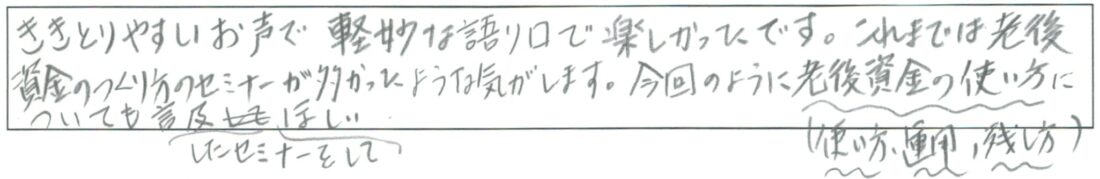 ききとりやすいお声で 軽妙な語り口で楽しかったです。これまでは老後
資金のつくり方のセミナーが多かったような気がします。今回のように老後資金の使い方に
ついても言及 ほしい
したセミナーをして
(使い方、運用、残し方)